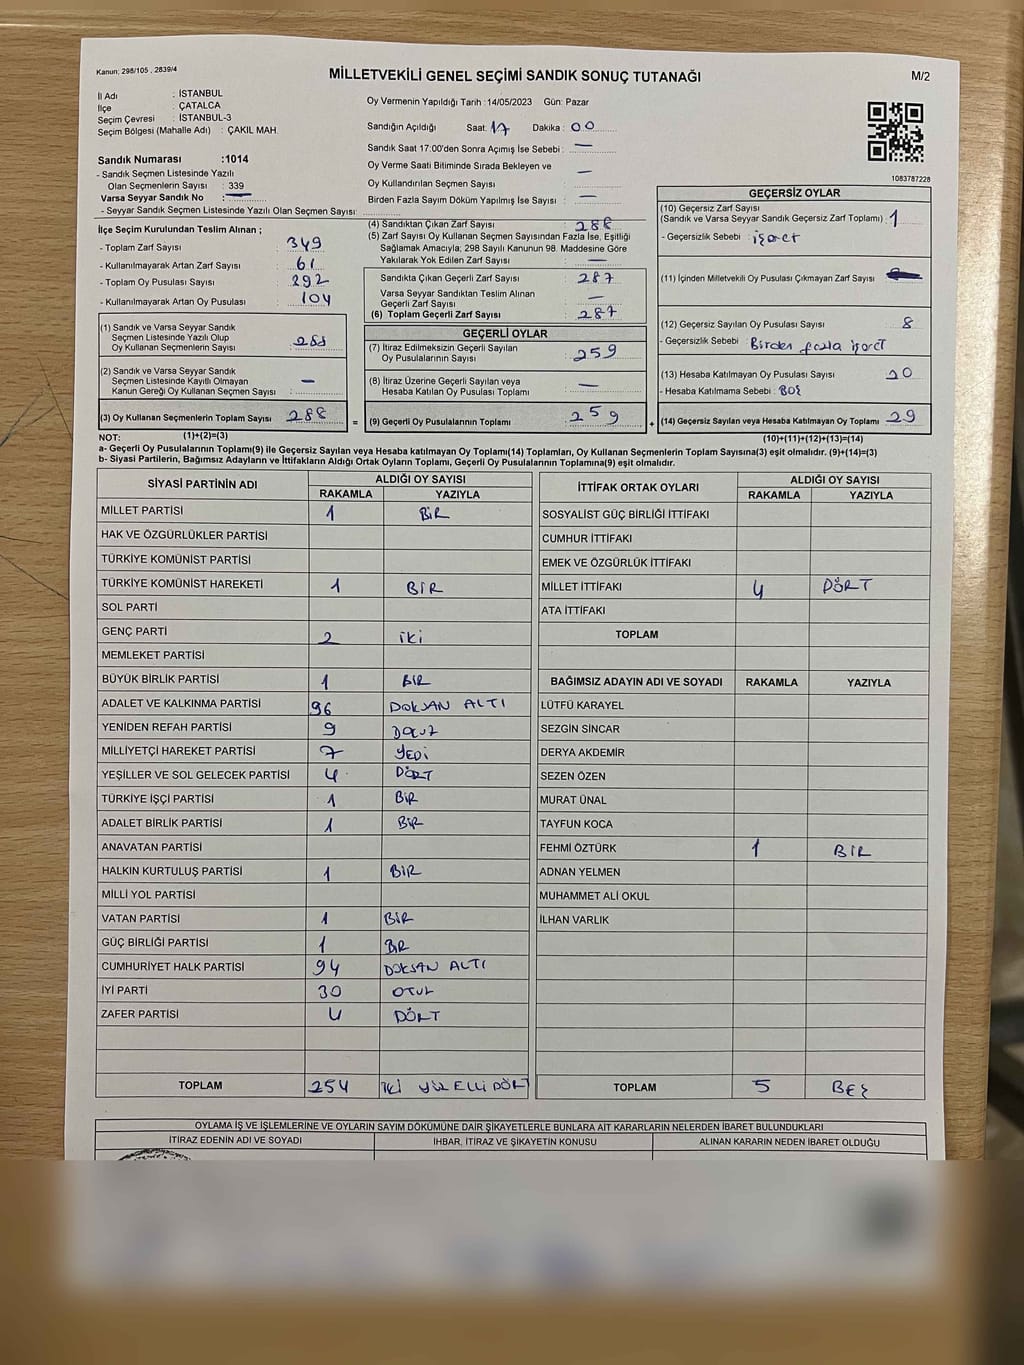 Kanun; 298/105 , 2839/4
MİLLETVEKİLİ GENEL SEÇİMİ SANDIK SONUÇ TUTANAĞI
M/2
İl Adı : İSTANBUL
İlçe : ÇATALCA
Seçim Çevresi : İSTANBUL-3
Seçim Bölgesi (Mahalle Adı) : ÇAKIL MAH.
Oy Vermenin Yapıldığı Tarih :14/05/2023 Gün: Pazar
Sandığın Açıldığı Saat: 17 Dakika : 00
Sandık Saat 17:00'den Sonra Açımış İse Sebebi : —
Oy Verme Saati Bitiminde Sırada Bekleyen ve
Oy Kullandırılan Seçmen Sayısı —
Birden Fazla Sayım Döküm Yapılmış İse Sayısı : —
1083787228
Sandık Numarası :1014
- Sandık Seçmen Listesinde Yazılı
Olan Seçmenlerin Sayısı : 339
Varsa Seyyar Sandık No : —
- Seyyar Sandık Seçmen Listesinde Yazılı Olan Seçmen Sayısı:
İlçe Seçim Kurulundan Teslim Alınan ;
- Toplam Zarf Sayısı : 349
- Kullanılmayarak Artan Zarf Sayısı : 61
- Toplam Oy Pusulası Sayısı : 392
- Kullanılmayarak Artan Oy Pusulası : 104
(1) Sandık ve Varsa Seyyar Sandık
Seçmen Listesinde Yazılı Olup
Oy Kullanan Seçmenlerin Sayısı : 288
(2) Sandık ve Varsa Seyyar Sandık
Seçmen Listesinde Kayıtlı Olmayan
Kanun Gereği Oy Kullanan Seçmen Sayısı : —
(3) Oy Kullanan Seçmenlerin Toplam Sayısı : 288
(4) Sandıktan Çıkan Zarf Sayısı : 288
(5) Zarf Sayısı Oy Kullanan Seçmen Sayısından Fazla İse, Eşitliği
Sağlamak Amacıyla; 298 Sayılı Kanunun 98. Maddesine Göre
Yakılarak Yok Edilen Zarf Sayısı : —
Sandıkta Çıkan Geçerli Zarf Sayısı : 287
Varsa Seyyar Sandıktan Teslim Alınan
Geçerli Zarf Sayısı : —
(6) Toplam Geçerli Zarf Sayısı : 287
GEÇERLİ OYLAR
(7) İtiraz Edilmeksizin Geçerli Sayılan
Oy Pusulalarının Sayısı : 259
(8) İtiraz Üzerine Geçerli Sayılan veya
Hesaba Katılan Oy Pusulası Toplamı : —
= (9) Geçerli Oy Pusulalarının Toplamı : 259
GEÇERSİZ OYLAR
(10) Geçersiz Zarf Sayısı
(Sandık ve Varsa Seyyar Sandık Geçersiz Zarf Toplamı) : 1
- Geçersizlik Sebebi : işaret
(11) İçinden Milletvekili Oy Pusulası Çıkmayan Zarf Sayısı : —
(12) Geçersiz Sayılan Oy Pusulası Sayısı : 8
- Geçersizlik Sebebi : Birden fazla işaret
(13) Hesaba Katılmayan Oy Pusulası Sayısı : 20
- Hesaba Katılmama Sebebi : BOŞ
+ (14) Geçersiz Sayılan veya Hesaba Katılmayan Oy Toplamı : 29
NOT: (1)+(2)=(3) (10)+(11)+(12)+(13)=(14)
a- Geçerli Oy Pusulalarının Toplamı(9) ile Geçersiz Sayılan veya Hesaba katılmayan Oy Toplamı(14) Toplamları, Oy Kullanan Seçmenlerin Toplam Sayısına(3) eşit olmalıdır. (9)+(14)=(3)
b- Siyasi Partilerin, Bağımsız Adayların ve İttifakların Aldığı Ortak Oyların Toplamı, Geçerli Oy Pusulalarının Toplamına(9) eşit olmalıdır.
SİYASİ PARTİNİN ADI ALDIĞI OY SAYISI
RAKAMLA YAZIYLA
MİLLET PARTİSİ 1 BİR
HAK VE ÖZGÜRLÜKLER PARTİSİ
TÜRKİYE KOMÜNİST PARTİSİ
TÜRKİYE KOMÜNİST HAREKETİ 1 BİR
SOL PARTİ
GENÇ PARTİ 2 iki
MEMLEKET PARTİSİ
BÜYÜK BİRLİK PARTİSİ 1 BİR
ADALET VE KALKINMA PARTİSİ 96 DOKSAN ALTI
YENİDEN REFAH PARTİSİ 9 DOKUZ
MİLLİYETÇİ HAREKET PARTİSİ 7 YEDİ
YEŞİLLER VE SOL GELECEK PARTİSİ 4 DÖRT
TÜRKİYE İŞÇİ PARTİSİ 1 BİR
ADALET BİRLİK PARTİSİ 1 BİR
ANAVATAN PARTİSİ
HALKIN KURTULUŞ PARTİSİ 1 BİR
MİLLİ YOL PARTİSİ
VATAN PARTİSİ 1 BİR
GÜÇ BİRLİĞİ PARTİSİ 1 BİR
CUMHURİYET HALK PARTİSİ 94 DOKSAN ALTI
İYİ PARTİ 30 OTUZ
ZAFER PARTİSİ 4 DÖRT
TOPLAM 254 İKİ YÜZ ELLİ DÖRT
İTTİFAK ORTAK OYLARI ALDIĞI OY SAYISI
RAKAMLA YAZIYLA
SOSYALİST GÜÇ BİRLİĞİ İTTİFAKI
CUMHUR İTTİFAKI
EMEK VE ÖZGÜRLÜK İTTİFAKI
MİLLET İTTİFAKI 4 DÖRT
ATA İTTİFAKI
TOPLAM
BAĞIMSIZ ADAYIN ADI VE SOYADI RAKAMLA YAZIYLA
LÜTFÜ KARAYEL
SEZGİN SİNCAR
DERYA AKDEMİR
SEZEN ÖZEN
MURAT ÜNAL
TAYFUN KOCA
FEHMİ ÖZTÜRK 1 BİR
ADNAN YELMEN
MUHAMMET ALİ OKUL
İLHAN VARLIK
TOPLAM 5 BEŞ
OYLAMA İŞ VE İŞLEMLERİNE VE OYLARIN SAYIM DÖKÜMÜNE DAİR ŞİKAYETLERLE BUNLARA AİT KARARLARIN NELERDEN İBARET BULUNDUKLARI
İTİRAZ EDENİN ADI VE SOYADI İHBAR, İTİRAZ VE ŞİKAYETİN KONUSU ALINAN KARARIN NEDEN İBARET OLDUĞU